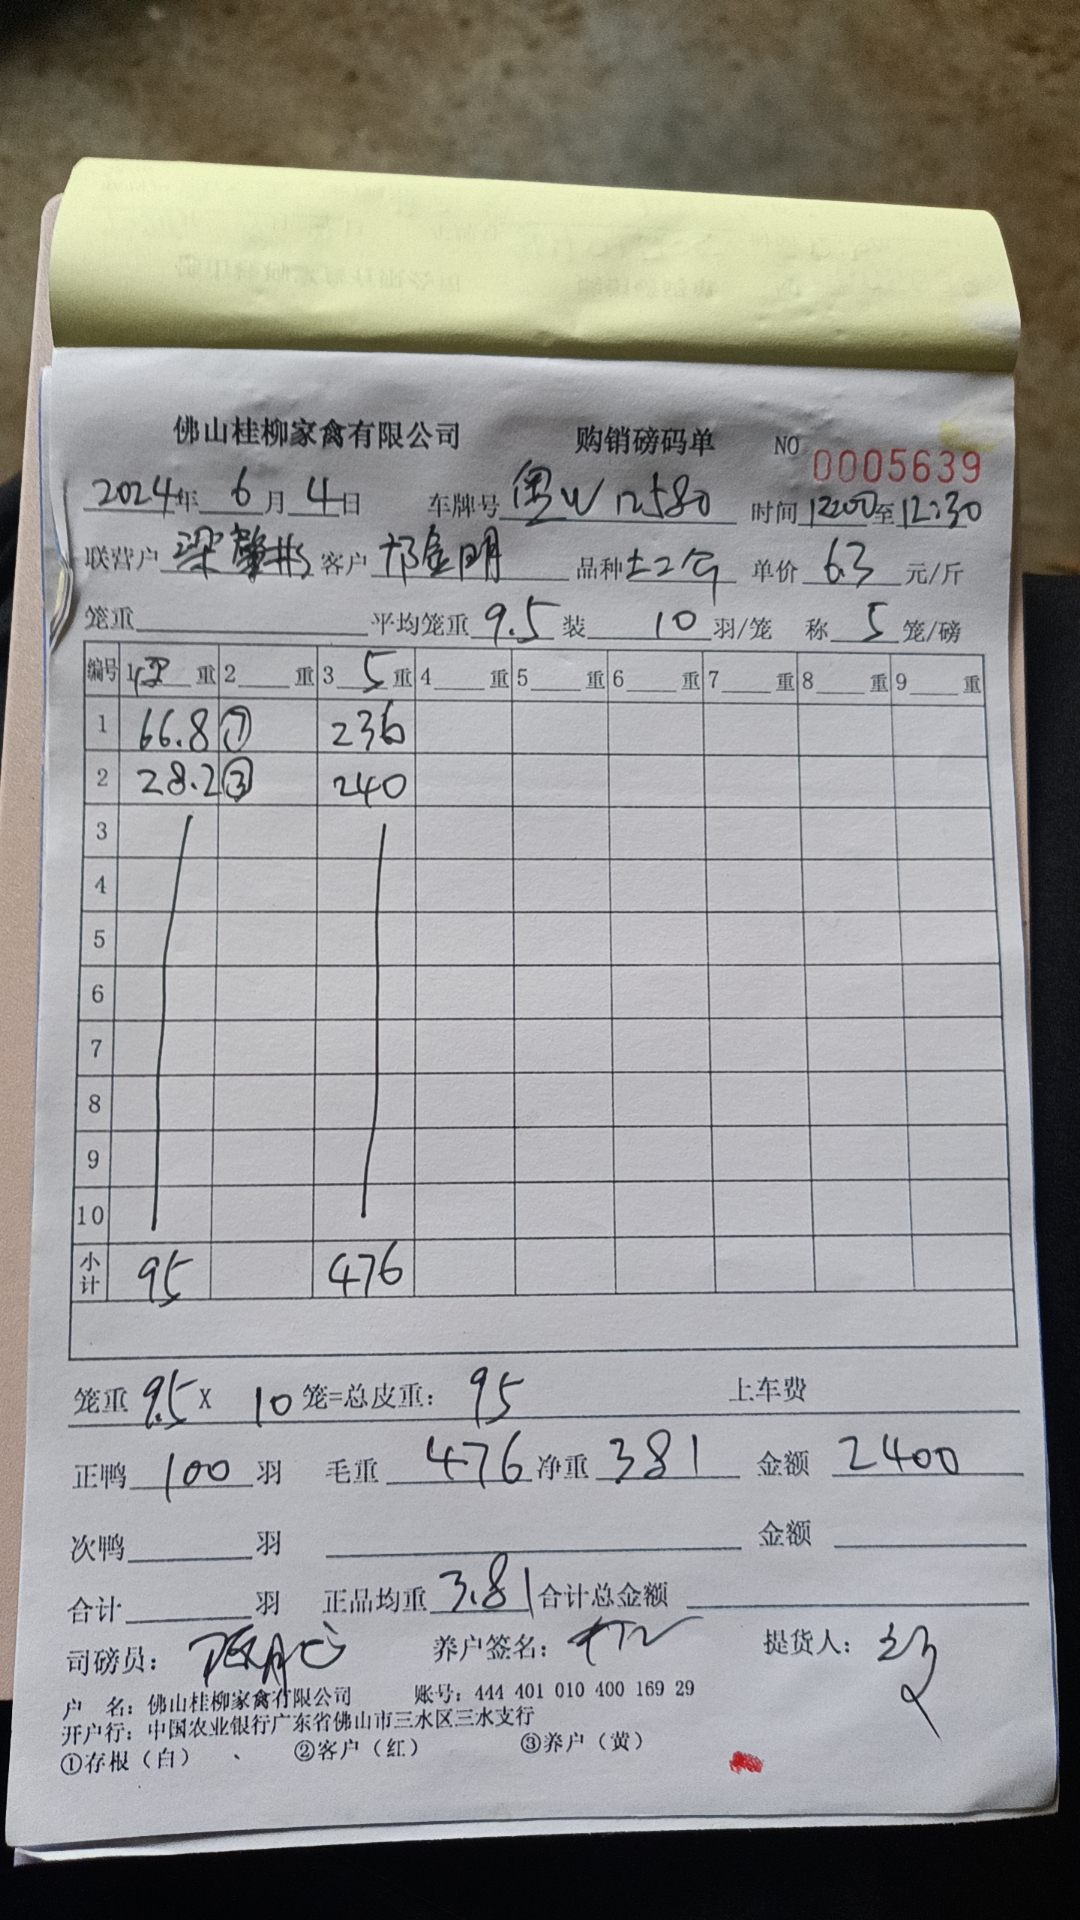 佛山桂柳家禽有限公司 购销磅码单 NO 0005639
2024年 6月 4日 车牌号 粤W12580 时间 12:00至12:30
联营户 梁肇彬 客户 祁金明 品种 土2公 单价 6.3 元/斤
笼重 平均笼重 9.5 装 10 羽/笼 称 5 笼/磅
编号 1 空 重 2 重 3 5 重 4 重 5 重 6 重 7 重 8 重 9 重
1 66.8 ⑦ 236
2 28.2 ③ 240
3
4
5
6
7
8
9
10
小计 95 476
笼重 9.5 X 10 笼=总皮重: 95 上车费
正鸭 100 羽 毛重 476 净重 381 金额 2400
次鸭 羽 金额
合计 羽 正品均重 3.81 合计总金额
司磅员: 养户签名: 提货人:
户 名: 佛山桂柳家禽有限公司 账号: 444 401 010 400 169 29
开户行: 中国农业银行广东省佛山市三水区三水支行
①存根（白） ②客户（红） ③养户（黄）